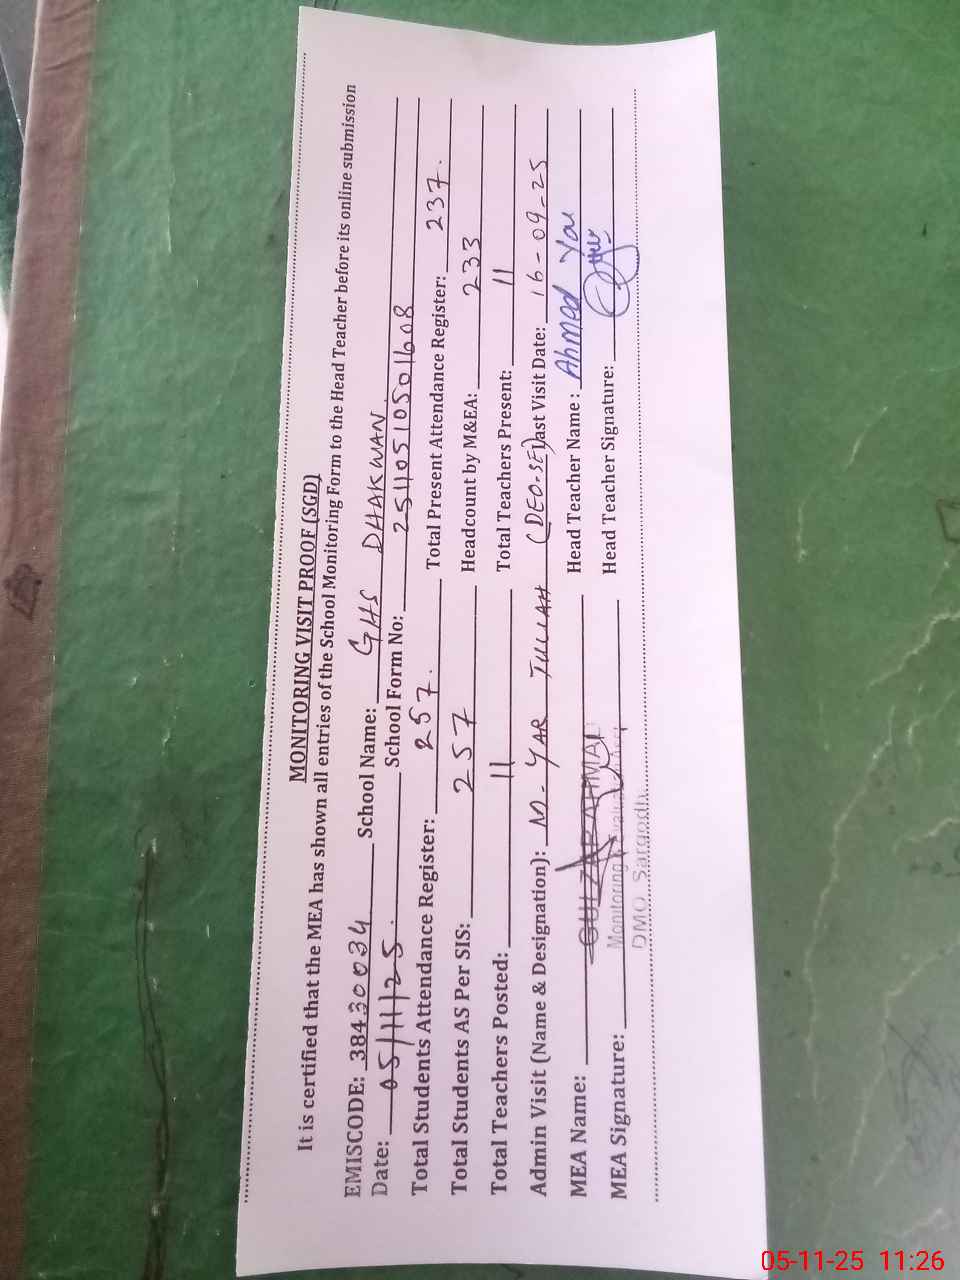 MONITORING VISIT PROOF (SGD)
It is certified that the MEA has shown all entries of the School Monitoring Form to the Head Teacher before its online submission
EMISCODE: 38430034 School Name: GHS DHAKWAN
Date: 05/11/25. School Form No: 2511051050 1608
Total Students Attendance Register: 257. Total Present Attendance Register: 237.
Total Students AS Per SIS: 257 Headcount by M&EA: 233
Total Teachers Posted: 11 Total Teachers Present: 11
Admin Visit (Name & Designation): M. YAR (DEO-SE) Last Visit Date: 16-09-25
MEA Name: Head Teacher Name: Ahmed Yar
MEA Signature: Monitoring Head Teacher Signature:
DMO Sargodha
05-11-25 11:26